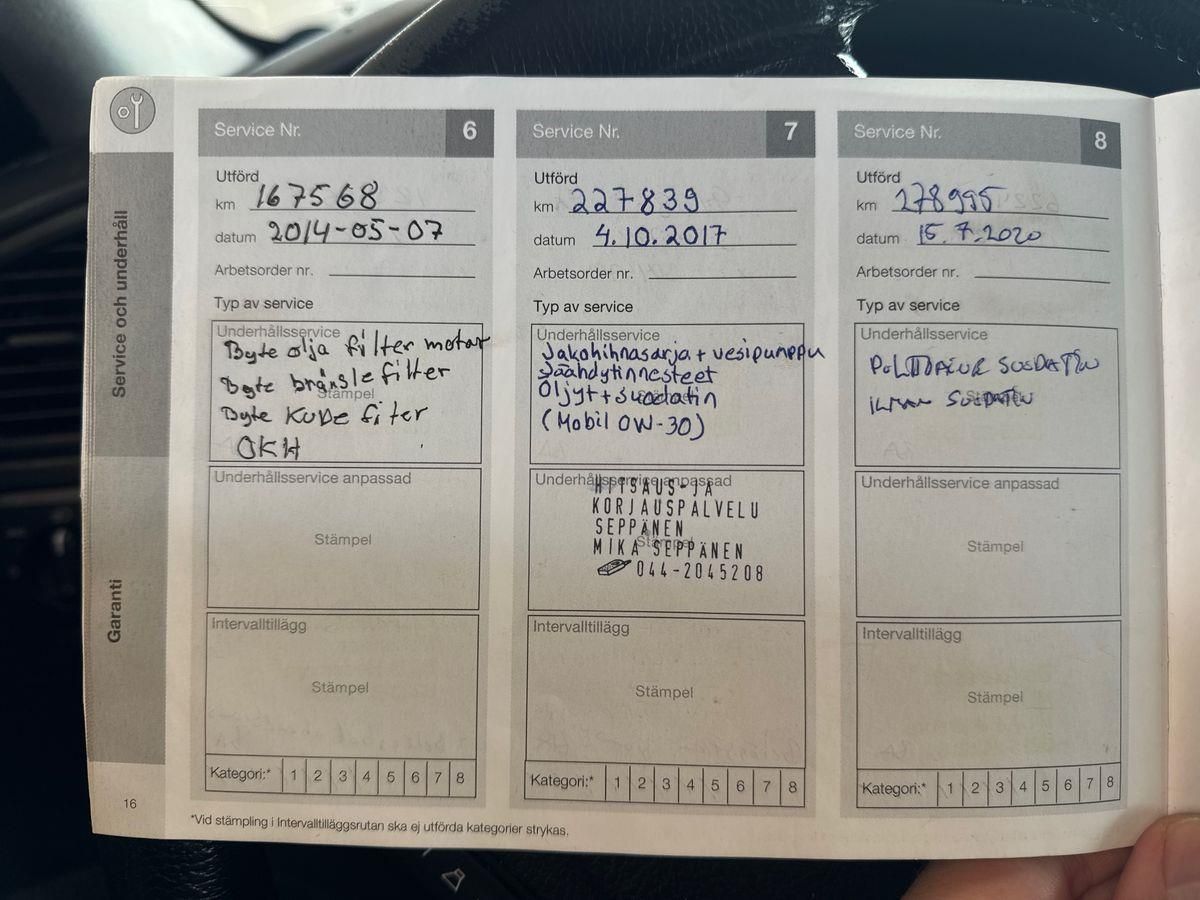 Service och underhåll
Garanti
16
Service Nr. 6
Utförd
km 167568
datum 2014-05-07
Arbetsorder nr.
Typ av service
Underhållsservice
Byte olja filter motor
Byte bränsle filter
Stämpel
Byte Kupe fiter
OKH
Underhållsservice anpassad
Stämpel
Intervalltillägg
Stämpel
Kategori:* 1 2 3 4 5 6 7 8
Service Nr. 7
Utförd
km 227839
datum 4.10.2017
Arbetsorder nr.
Typ av service
Underhållsservice
Jakohihnasarja + vesipumppu
Jäähdytinnesteet
Öljyt + suodatin
(Mobil 0W-30)
Underhållsservice anpassad
HITSAUS-JA
KORJAUSPALVELU
SEPPÄNEN
Stämpel
MIKA SEPPÄNEN
044-2045208
Intervalltillägg
Stämpel
Kategori:* 1 2 3 4 5 6 7 8
Service Nr. 8
Utförd
km 178995
datum 15.7.2020
Arbetsorder nr.
Typ av service
Underhållsservice
SUODATIN
ILMAN SUODATIN
Underhållsservice anpassad
Stämpel
Intervalltillägg
Stämpel
Kategori:* 1 2 3 4 5 6 7 8
*Vid stämpling i Intervalltilläggsrutan ska ej utförda kategorier strykas.